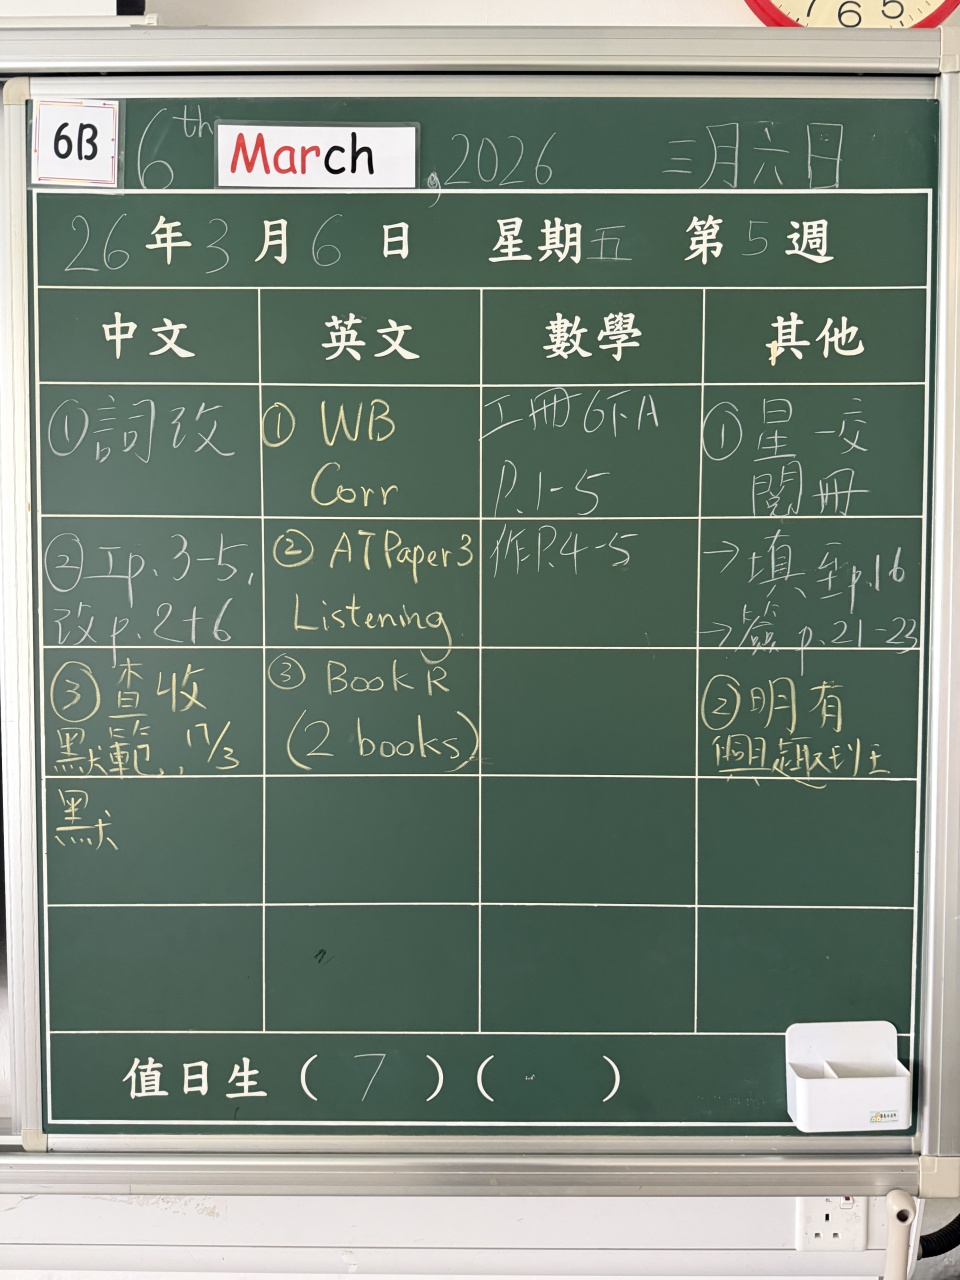 7 6 5
6B 6th March, 2026 三月六日
26年3月6日 星期五 第5週
中文 英文 數學 其他
①詞改
②工p.3-5,
改p.2+6
③查收
默範, 17/3
默
① WB
Corr
② AT Paper 3
Listening
③ Book R
(2 books)
工冊6下A
P.1-5
作P.4-5
①星一交
閱冊
→填至p.16
→簽p.21-23
②明有
值日生(7)( )